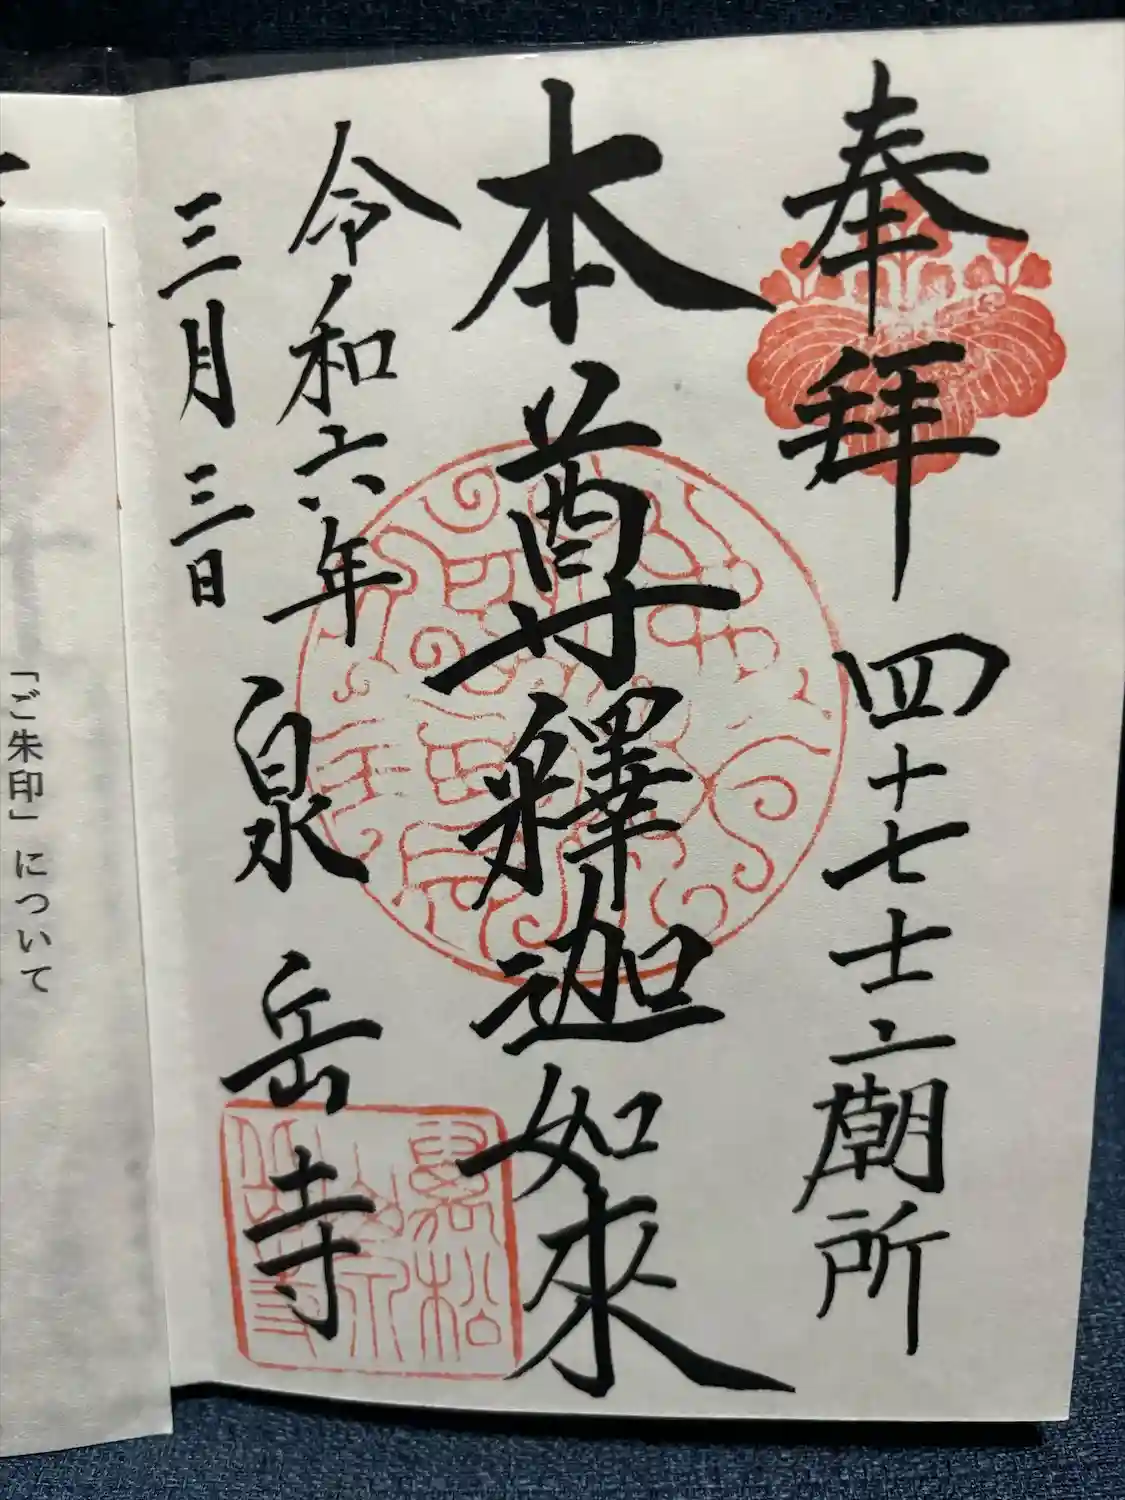 奉拝 四十七士廟所
本尊釋迦如來
令和六年
三月三日
泉岳寺
萬松
「ご朱印」について